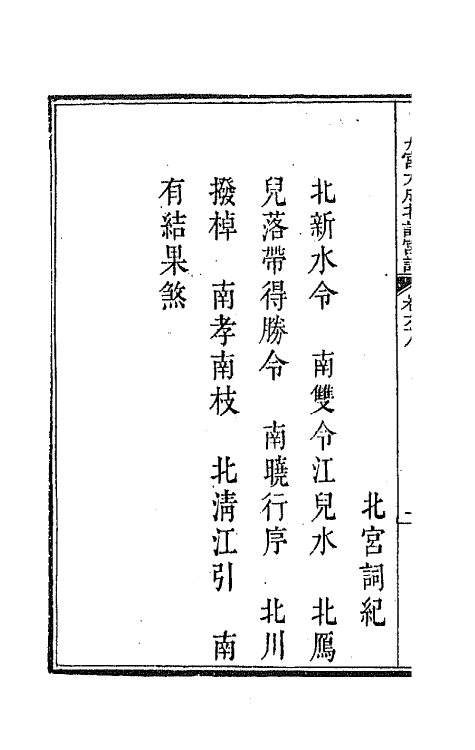 北宮詞紀
北新水令　南雙令江兒水　北鴈
兒落帶得勝令　南曉行序　北川
撥棹　南孝南枝　北淸江引　南
有結果煞